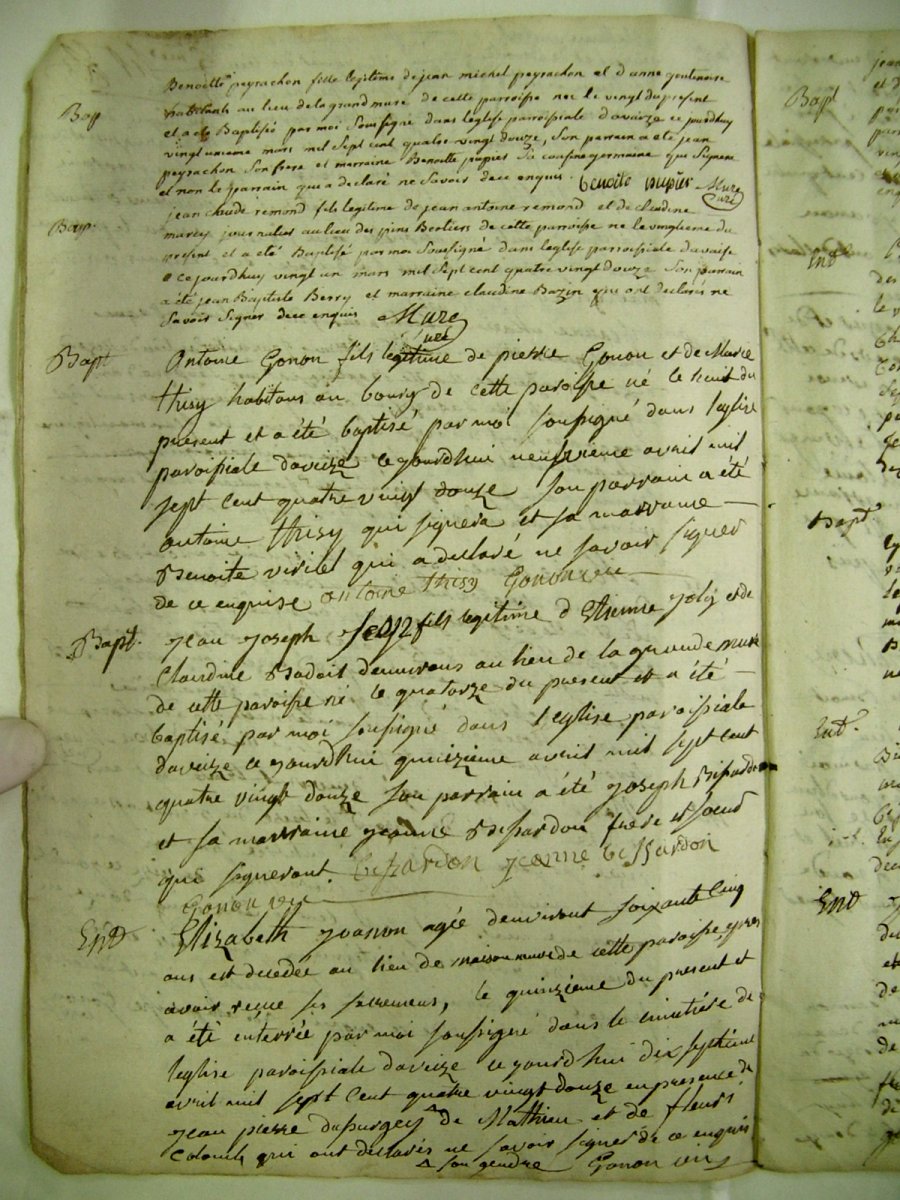 Bap
Benoitte peyrachon fille legitime de jean michel peyrachon et d'anne
habitants au lieu de la grand mure de cette parroisse nee le vingt du present
et a ete Baptisée par moi Soussigné dans leglise parroissiale davaize ce jourdhuy
vingt unieme mars mil Sept cent quatre vingt douze, Son parrain a ete jean
peyrachon Son frere et marraine Benoitte pupier Sa cousine germaine qui Signera
et non le parrain qui a declaré ne Savoir dece enquis. benoite pupier Mure
curé
Bap.
jean claude remond fils legitime de jean antoine remond et de claudine
marcy journalier au lieu des pins Bertiers de cette parroisse ne le vingtieme du
present et a été Baptisé par moi Soussigné dans leglise parroissiale davaise
ce jourdhuy vingt un mars mil Sept cent quatre vingt douze Son parrain
a été jean Baptiste Berry et marraine claudine Bazin qui ont declarés ne
Savoir Signer dece enquis Mure
curé
Bapt
Antoine Gonon fils legitime de pierre Gonon et de Marie
thisy habitans au bourg de cette paroisse né le huit du
present et a été baptisé par moi soussigné dans leglise
paroissiale davaize ce jourdhui neufvieme avril mil
sept cent quatre vingt douze son parrain a été
antoine thisy qui signera et sa marraine
Benoite qui a declaré ne savoir signer
de ce enquise antoine thisy Gonon vic
Bapt.
jean joseph Joly fils legitime d'Etienne Joly et de
Claudine Badoit demeurans au lieu de la grande mure
de cette paroisse né le quatorze du present et a été
baptisé par moi soussigné dans l'eglise paroissiale
davaize ce jourdhui quinzieme avril mil sept cent
quatre vingt douze son parrain a été joseph Bessardon
et sa marraine jeanne Bessardon frere et soeur
qui signeront. bessardon jeanne bessardon
Gonon vic
Ent
Elizabeth agée d'environt soixante cinq
ans est decedée au lieu de maison neuve de cette paroisse, après
avoir reçue ses sacremens, le quinzieme du present et
a été enterrée par moi soussigné dans le cimetiére de
leglise paroissiale davaize ce jourdhui dix septieme
avril mil sept cent quatre vingt douze en presence de
jean pierre dupurgey de Mathieu et de fleuri
Colomb qui ont declarés ne savoir signer de ce enquis
son gendre Gonon vic
Bapt
Ent
Bapt
Ent.
Ent